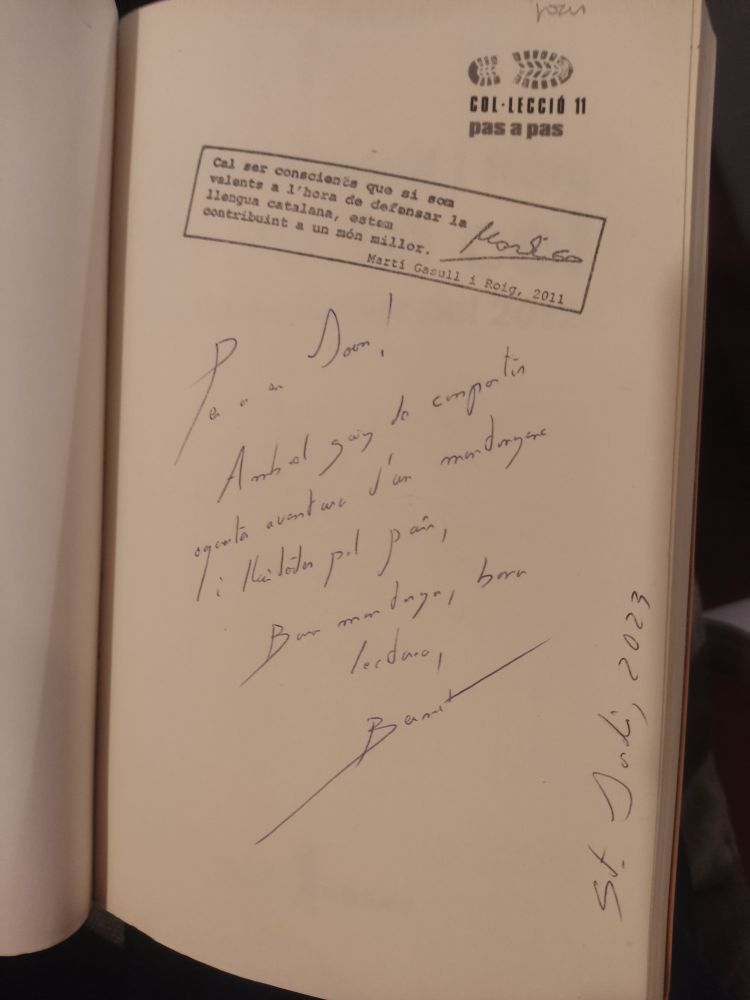 Joan
COL·LECCIÓ 11
pas a pas
Cal ser conscients que si som
valents a l'hora de defensar la
llengua catalana, estem
contribuint a un món millor.
Martí Gasull i Roig, 2011
Per a en Joan!
Amb el goig de compartir
aquesta aventura d'un muntanyenc
i lluitador pel país,
Bona muntanya, bona
lectura,
Bernat
St. Jordi, 2023